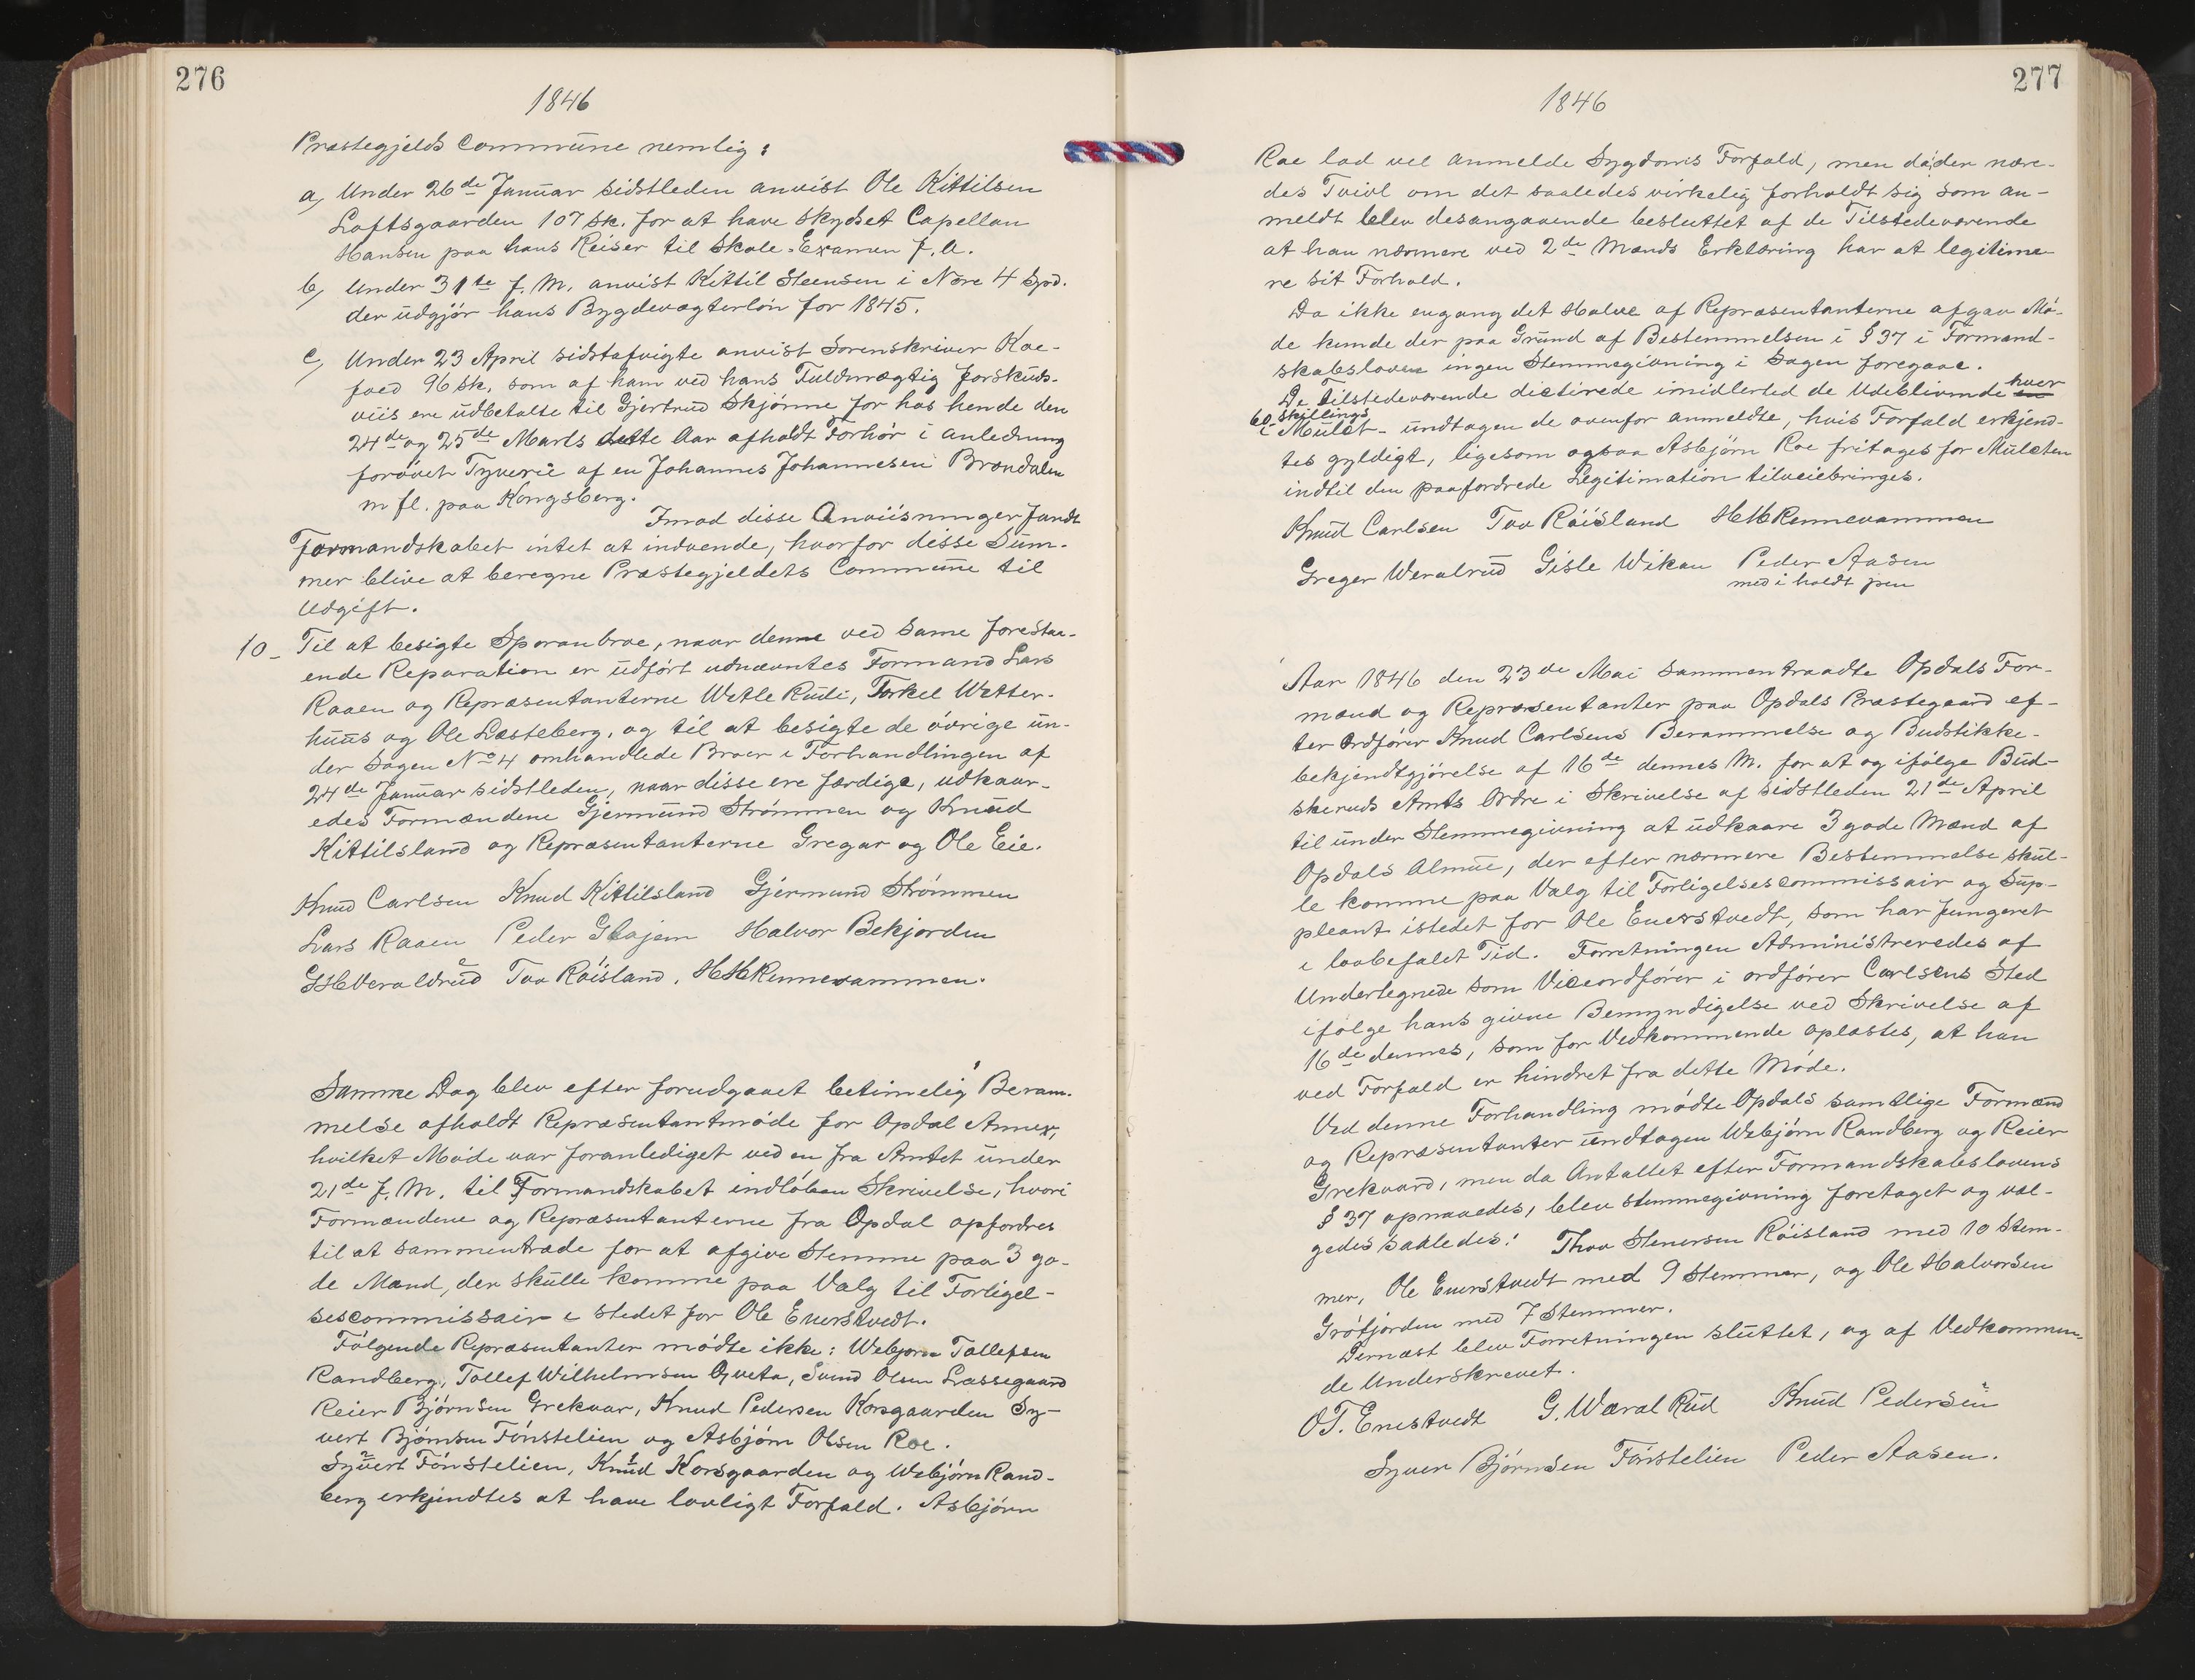 276
1846
Præstegjelds Commune nemlig:
a, Under 26de Januar sidstleden anvist Ole Kittilsen
Loftsgaarden 107 sk. for at have skydset Capellan
Hansen paa hans Reiser til Skole-Examen f. A.
b, Under 31te f. M. anvist Kittil Steensen i Nore 4 Spd.
der udgjör hans Bygdevægterlön for 1845.
c, Under 23 April sidstafvigte anvist Sorenskriver Koe-
foed 96 sk. som af ham ved hans Fuldmægtig forskuds-
viis ere udbetalte til Gjertrud Skjönne for hos hende den
24de og 25de Marts dette Aar afholdt Forhör i anledning
forövet Tyverie af en Johannes Johannesen Brændalen
m fl. paa Kongsberg.
Imod disse Anviisninger fandt
Formandskabet intet at indvende, hvorfor disse Sum-
mer blive at beregne Præstegjeldets Commune til
Udgift.
10- Til at besigte Sporanbroe, naar denne ved samme forestaa-
ende Reparation er udfört udnævntes Formand Lars
Raaen og Repræsentanterne Wetle Rudi, Torkel Wetter-
huus og Ole Læsteberg, og til at besigte de övrige un-
der Sagen No 4 omhandlede Broer i Forhandlingen af
24de Januar sidstleden, naar disse ere færdige, udkaar-
edes Formændene Gjermund Strömmen og Knud
Kittilsland og Repræsentanterne Gregar og Ole Eie.
Knud Carlsen Knud Kittilsland Gjermund Strömmen
Lars Raaen Peder Glajem Halvor Bekjorden
GHWeraldrud Tov Röisland. HHKennevammen.
Samme Dag blev efter forudgaaet betimelig Beram-
melse afholdt Repræsentantmöde for Opdal Annex,
hvilket Möde var foranlediget ved en fra Amtet under
21de f. M. til Formandskabet indlöben Skrivelse, hvori
Formændene og Repræsentanterne fra Opdal opfordres
til at sammentræde for at afgive Stemme paa 3 go-
de Mænd, der skulle komme paa Valg til Forligel-
sescommissair i stedet for Ole Enerstvedt.
Fölgende Repræsentanter mödte ikke: Webjorn Tollefsen
Randberg, Tollef Wilhelmsen Qveta, Svend Olsen Læssegaard
Reier Björnsen Grekvar, Knud Pedersen Korsgaarden Sy-
vert Björnsen Fönstelien og Asbjörn Olsen Roe.
Syvert Fönstelien, Knud Korsgaarden og Webjörn Rand-
berg erkjendtes at have lovligt Forfald. Asbjörn
277
1846
Roe lod vel anmelde Sygdoms Forfald, men da der nære-
des Tvivl om det saaledes virkelig forholdt sig som an-
meldt blev desangaaende besluttet af de Tilstedeværende
at han nærmere ved 2de Mænds Erklæring har at legitime-
re sit Forhold.
Da ikke engang det Halve af Repræsentanterne afgav Mö-
de kunde der paa Grund af Bestemmelsen i § 37 i Formand-
skabsloven ingen Stemmegivning i Sagen foregaae.
De Tilstedeværende dicterede imidlertid de Udeblivende hver
60 skillings
i Mulct - undtagen de ovenfor anmeldte, hvis Forfald erkjend-
tes gyldigt, ligesom ogsaa Asbjörn Roe fritages for Mulcten
indtil den paafordrede Legitimation tilveiebringes.
Knud Carlsen Tov Röisland HHKennevammen
Greger Weralrud Gisle Wikan Peder Aasen
med i holdt pen
Aar 1846 den 23de Mai sammentraadte Opdals For-
mænd og Repræsentanter paa Opdals Præstegaard ef-
ter Ordförer Knud Carlsens Berammelse og Budstikke-
bekjendtgjörelse af 16de dennes M. for at og ifölge Bud-
skeruds Amts Ordre i Skrivelse af sidstleden 21de April
til under Stemmegivning at udkaare 3 gode Mænd af
Opdals Almue, der efter nærmere Bestemmelse skul-
le komme paa Valg til Forligelsescommissair og Sup-
pleant istedet for Ole Enerstvedt, som har fungeret
i lovbefalet Tid. Forretningen Administreredes af
Undertegnede som Viceordförer i ordförer Carlsens Sted
ifölge hans givne Bemyndigelse ved Skrivelse af
16de dennes, som for Vedkommende oplæstes, at han
ved Forfald er hindret fra dette Möde.
Ved denne Forhandling mödte Opdals samtlige Formænd
og Repræsentanter undtagen Webjörn Randberg og Reier
Grekvard, men da Antallet efter Formandskabslovens
§ 37 opnaaedes, blev stemmegivning foretaget og val-
gedes saaledes: Thov Stenersen Röisland med 10 Stem-
mer, Ole Enerstvedt med 9 Stemmer, og Ole Halvorsen
Grötjorden med 7 Stemmer.
Dernæst blev Forretningen sluttet, og af Vedkommen-
de Underskrevet.
OT. Enestvedt G. Wæral Rud Knud Pedersen
Syver Björnsen Fönstelien Peder Aasen.